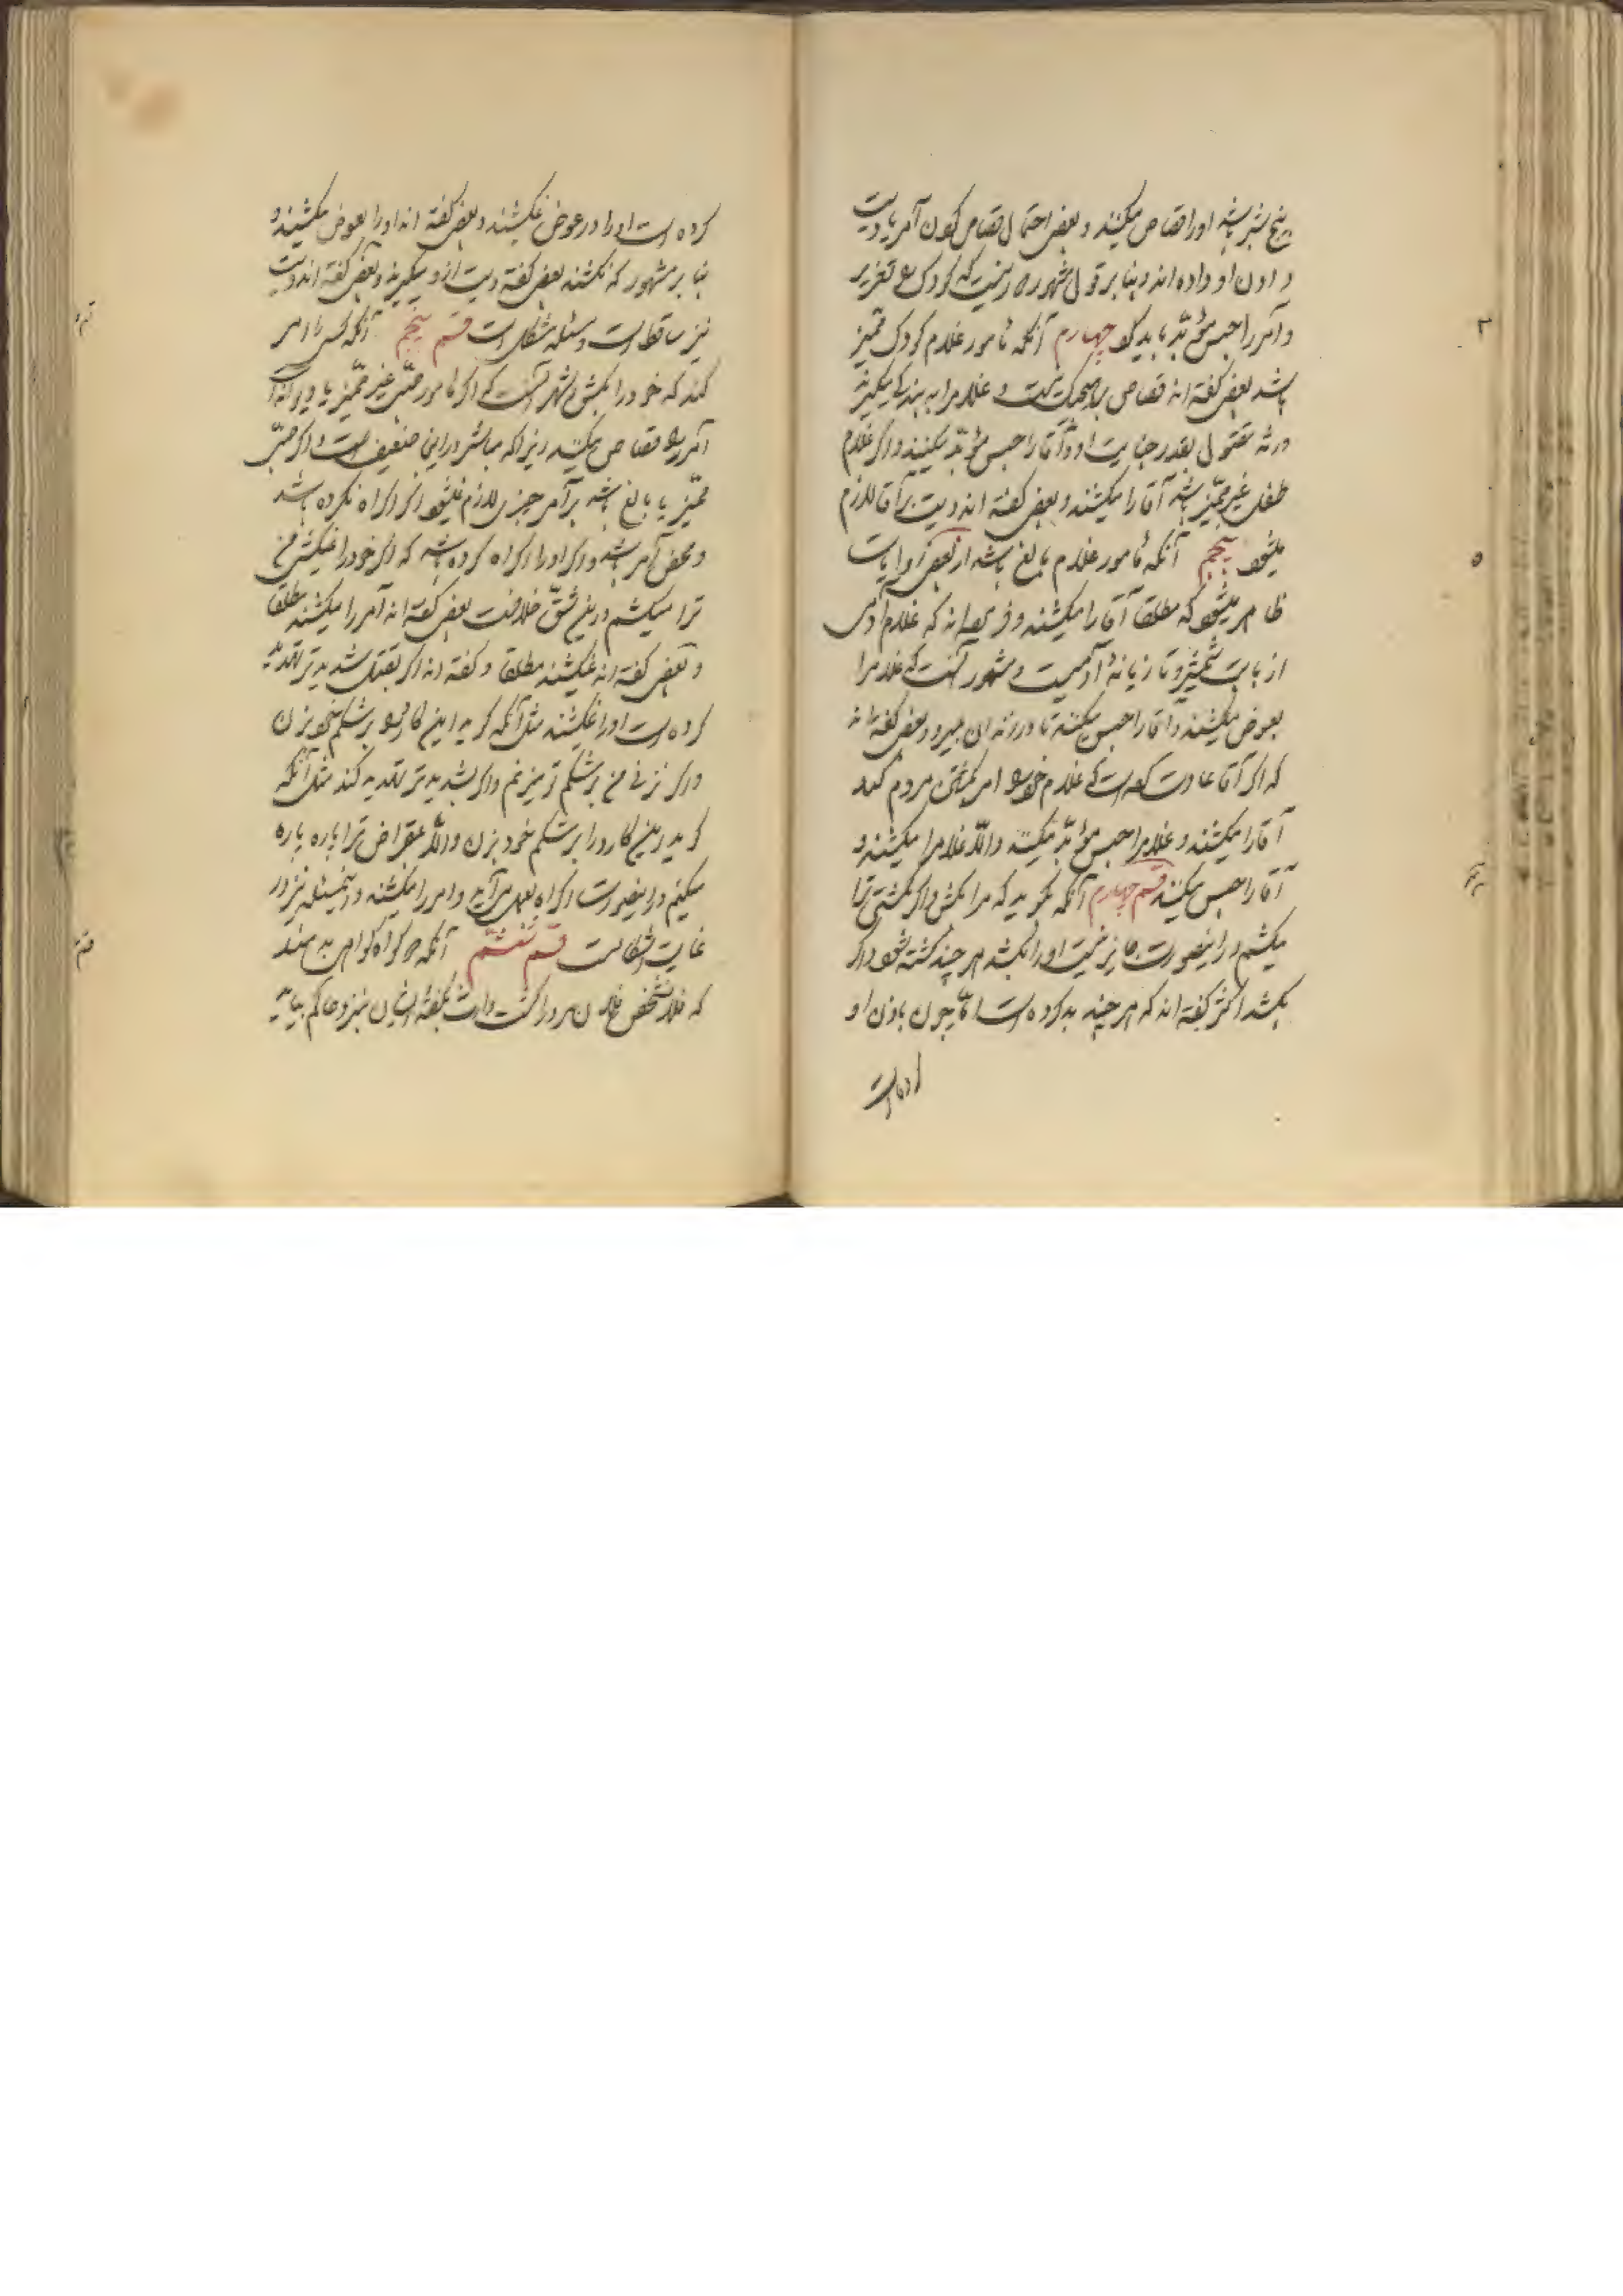 پنج شبر باشد او را قصاص میکنند و بعض احتمال قصاص کردن آمر یا دیت
دادن او داده اند و بنابر قول مشهور چاره نیست که کودک را تعزیر
و آمر را حبس مؤبّد باید کرد چهارم آنکه مأمور غلام کودک ممیّز
باشد بعض گفته اند قصاص بر هیچیک نیست و غلام را به بندگی میگیرند
ورثه مقتول بقدر جنایت او و آقا را حبس مؤبّد میکنند و اگر غلام
طفل غیر ممیّز باشد آقا را میکشند و بعض گفته اند دیت بر آقا لازم
میشود پنجم آنکه مأمور غلام بالغ باشد از بعض روایات
ظاهر میشود که مطلقا آقا را میکشند و فرموده اند که غلام آدمی
از بابت شمشیر و تازیانهٔ آدمیست و مشهور آنست که غلام را
بعوض میکشند و آقا را حبس میکنند تا در زندان بمیرد و بعض گفته اند
که اگر آقا عادت کرده است که غلام خود را امر بکشتن مردم کند
آقا را میکشند و غلام را حبس مؤبّد میکنند و الّا غلام را میکشند و
آقا را حبس میکنند قسم چهارم آنکه بگوید که مرا بکش و اگر نکشتی ترا
میکشم در اینصورت جایز نیست او را بکشد هر چند کشته شود و اگر
بکشد اکثر گفته اند که هر چند بد کرده است امّا چون باذن او
کرده است
کرده است او را در عوض نمیکشند و بعض گفته اند او را بعوض میکشند و
بنابر مشهور که نکشند بعض گفته دیت از او میگیرند و بعض گفته اند دیت
نیز ساقط است و مسئله مشکل است قسم پنجم آنکه کسی را امر
کند که خود را بکش مشهور آنست که اگر مأمور صبیّ غیر ممیّز یا دیوانه
آمر را قصاص میکنند زیرا که مباشر در این ضعیف است و اگر صبیّ
ممیّز یا بالغ باشد بر آمر چیزی لازم نمیشود اگر اکراه نکرده باشد
و محض امر باشد و اگر او را اکراه کرده باشد که اگر خود را نمیکشی من
ترا میکشم در این شقّ خلافست بعض گفته اند آمر را میکشند مطلقا
و بعض گفته اند نمیکشند مطلقا و گفته اند اگر بقتل شدیدتر تهدید
کرده است او را نمیکشند مثل آنکه گوید این کارد را بر شکم خود بزن
و اگر نزنی من بر شکم تو میزنم و اگر بشدیدتر تهدید کند مثل آنکه
گوید این کارد را بر شکم خود بزن و الّا بمقراض ترا پاره پاره
میکنم در اینصورت اکراه بعمل می آید و آمر را میکشند و اینمسئله نیز در
غایت اشکالست قسم ششم آنکه دو گواه گواهی بدهند
که فلان شخص فلان مرد را کشت وارث بگفته ایشان نزد حاکم بیاید